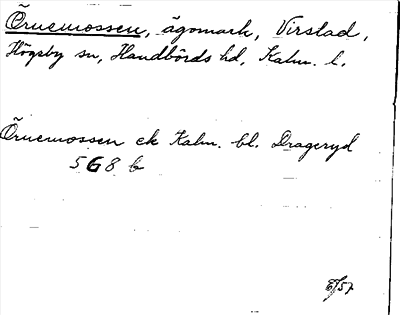 Örnemossen, ägomark, Virstad,
Högsby sn, Handbörds hd, Kalm. l.
Örnemossen ek Kalm. bl. Drageryd
568 b
E/57